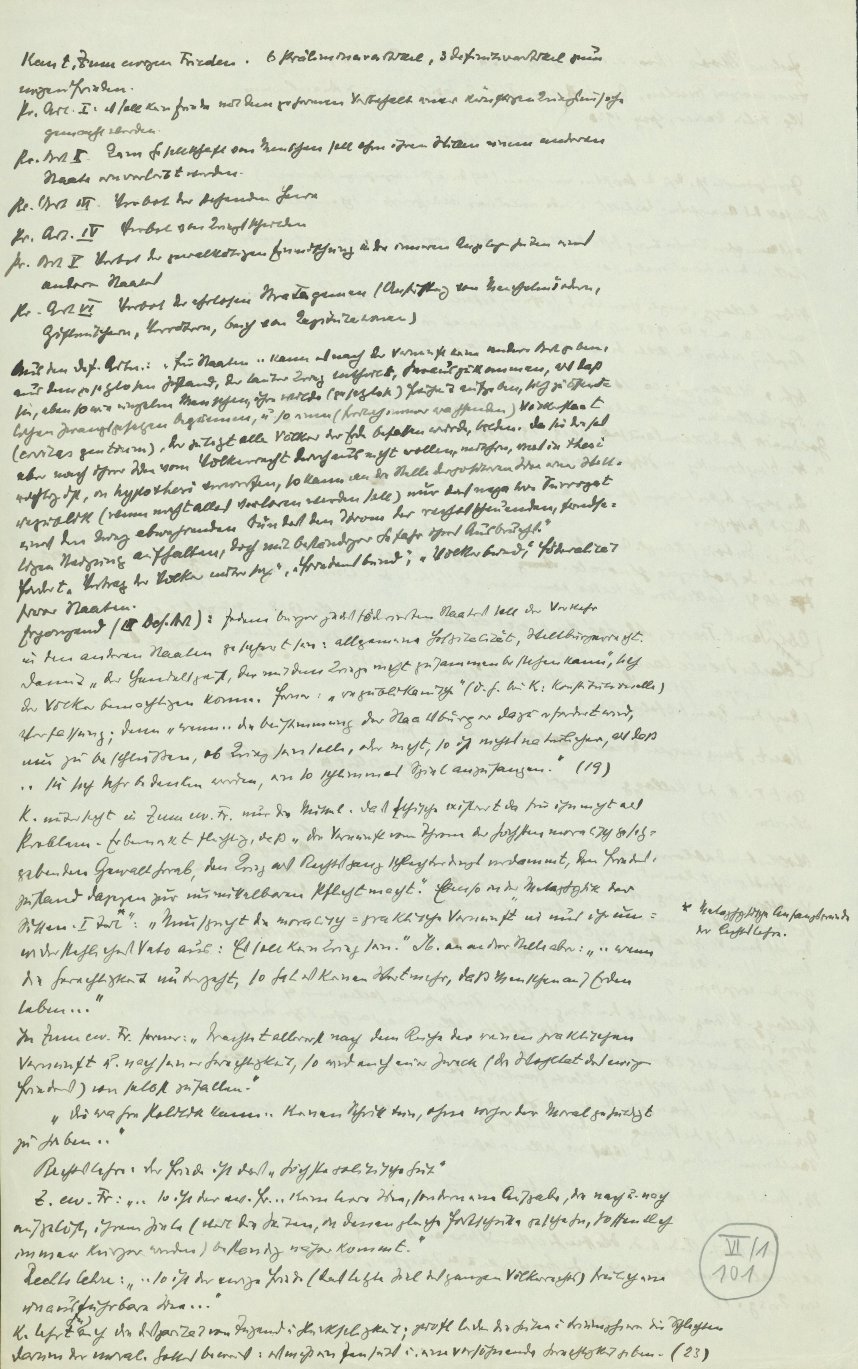 Kant, Zum ewigen Frieden. 6 Präliminarartikel, 3 Definitivartikel zum
ewigen Frieden.
Pr. Art. I: es soll kein Friede mit dem geheimen Vorbehalt eines künftigen Krieges
gemacht werden.
Pr. Art II Keine Gesellschaft von Menschen soll ohne ihren Willen einem anderen
Staate einverleibt werden.
Pr. Art III. Verbot der stehenden Heere
Pr. Art. IV Verbot von Kriegsschulden
Pr. Art V Verbot der gewalttätigen Einmischung in die inneren Angelegenheiten eines
anderen Staates
Pr. Art VI Verbot der ehrlosen Stratagemen (Anstiftung von Meuchelmördern,
Giftmischern, Verrätern, Bruch von Kapitulationen)
Aus den def. Artn.: "Für Staaten .. kann es nach der Vernunft keine andere Art geben,
aus dem gesetzlosen Zustand, der lauter Krieg enthält, herauszukommen, als daß
sie, ebenso wie einzelne Menschen, ihre wilde (gesetzlose) Freiheit aufgeben, sich zu öffentlichen
Zwangsgesetzen bequemen, u so einen (freilich immer wachsenden) Völkerstaat
(civitas gentium), der zuletzt alle Völker der Erde befassen würde, bilden. Da sie dieses
aber nach ihrer Idee vom Völkerrecht durchaus nicht wollen, mithin, was in thesi
richtig ist, in hypothesi verwerfen, so kann an die Stelle der positiven Idee einer Welt-
republik (wenn nicht alles verloren werden soll) nur das negative Surrogat
eines den Krieg abwehrenden Bundes den Strom der rechtscheuenden, feindse-
ligen Neigung aufhalten, doch mit beständiger Gefahr ihres Ausbruchs."
Fordert "Vertrag der Völker unter sich", "Friedensbund", "Völkerbund", Föderalität
freier Staaten.
Ergänzend (III Def. Art): Jedem Bürger jedes föderierten Staates soll der Verkehr
in den anderen Staaten gesichert sein: allgemeine Hospitalität, Weltbürgerrecht.
Damit "der Handelsgeist, der mit dem Kriege nicht zusammen bestehen kann", sich
der Völker bemächtigen könne. Ferner: "republikanische" (d. h. bei K: konstitutionelle)
Verfassung; denn "wenn .. die Beistimmung der Staatsbürger dazu erfordert wird,
um zu beschließen, ob Krieg sein solle, oder nicht, so ist nichts natürlicher, als daß
.. sie sich sehr bedenken werden, ein so schlimmes Spiel anzufangen." (19)
K. untersucht in Zum ew. Fr. nur die Mittel. Das Ethische existiert da für ihn nicht als
Problem. Er bemerkt flüchtig, daß "die Vernunft vom Throne der höchsten moralisch gesetz-
gebenden Gewalt herab, den Krieg als Rechtsgang schlechterdings verdammt, den Friedens-
zustand dagegen zur unmittelbaren Pflicht macht". Ebenso in der "Metaphysik der
Sitten. I Teil*": "Nun spricht die moralisch=praktische Vernunft in uns ihr un=
widerstehliches Veto aus: Es soll kein Krieg sein." Ib. an andrer Stelle aber: ".. wenn
die Gerechtigkeit untergeht, so hat es keinen Wert mehr, daß Menschen auf Erden
leben..."
* Metaphysische Anfangsgründe
der Rechtslehre.
In Zum ew. Fr. ferner: "Trachtet allererst nach dem Reiche der reinen praktischen
Vernunft u. nach seiner Gerechtigkeit, so wird euch euer Zweck (die Wohltat des ewigen
Friedens) von selbst zufallen."
"Die wahre Politik kann .. keinen Schritt tun, ohne vorher der Moral gehuldigt
zu haben .."
Rechtslehre: der Friede ist das "höchste politische Gut"
Z. ew. Fr: ".. so ist der ew. Fr... keine leere Idee, sondern eine Aufgabe, die nach u. nach
aufgelöst, ihrem Ziele (weil die Zeiten, in denen gleiche Fortschritte geschehen, hoffentlich
immer kürzer werden) beständig näher kommt."
Rechtslehre: "..so ist der ewige Friede (das letzte Ziel des ganzen Völkerrechts) freilich eine
unausführbare Idee..."
K. lehrt auch die Disparität von Tugend u Glückseligkeit;
darum der moral. Gottesbeweis: es müsse ein Jenseits u. eine versöhnende Gerechtigkeit geben. (23)
VI/1
101